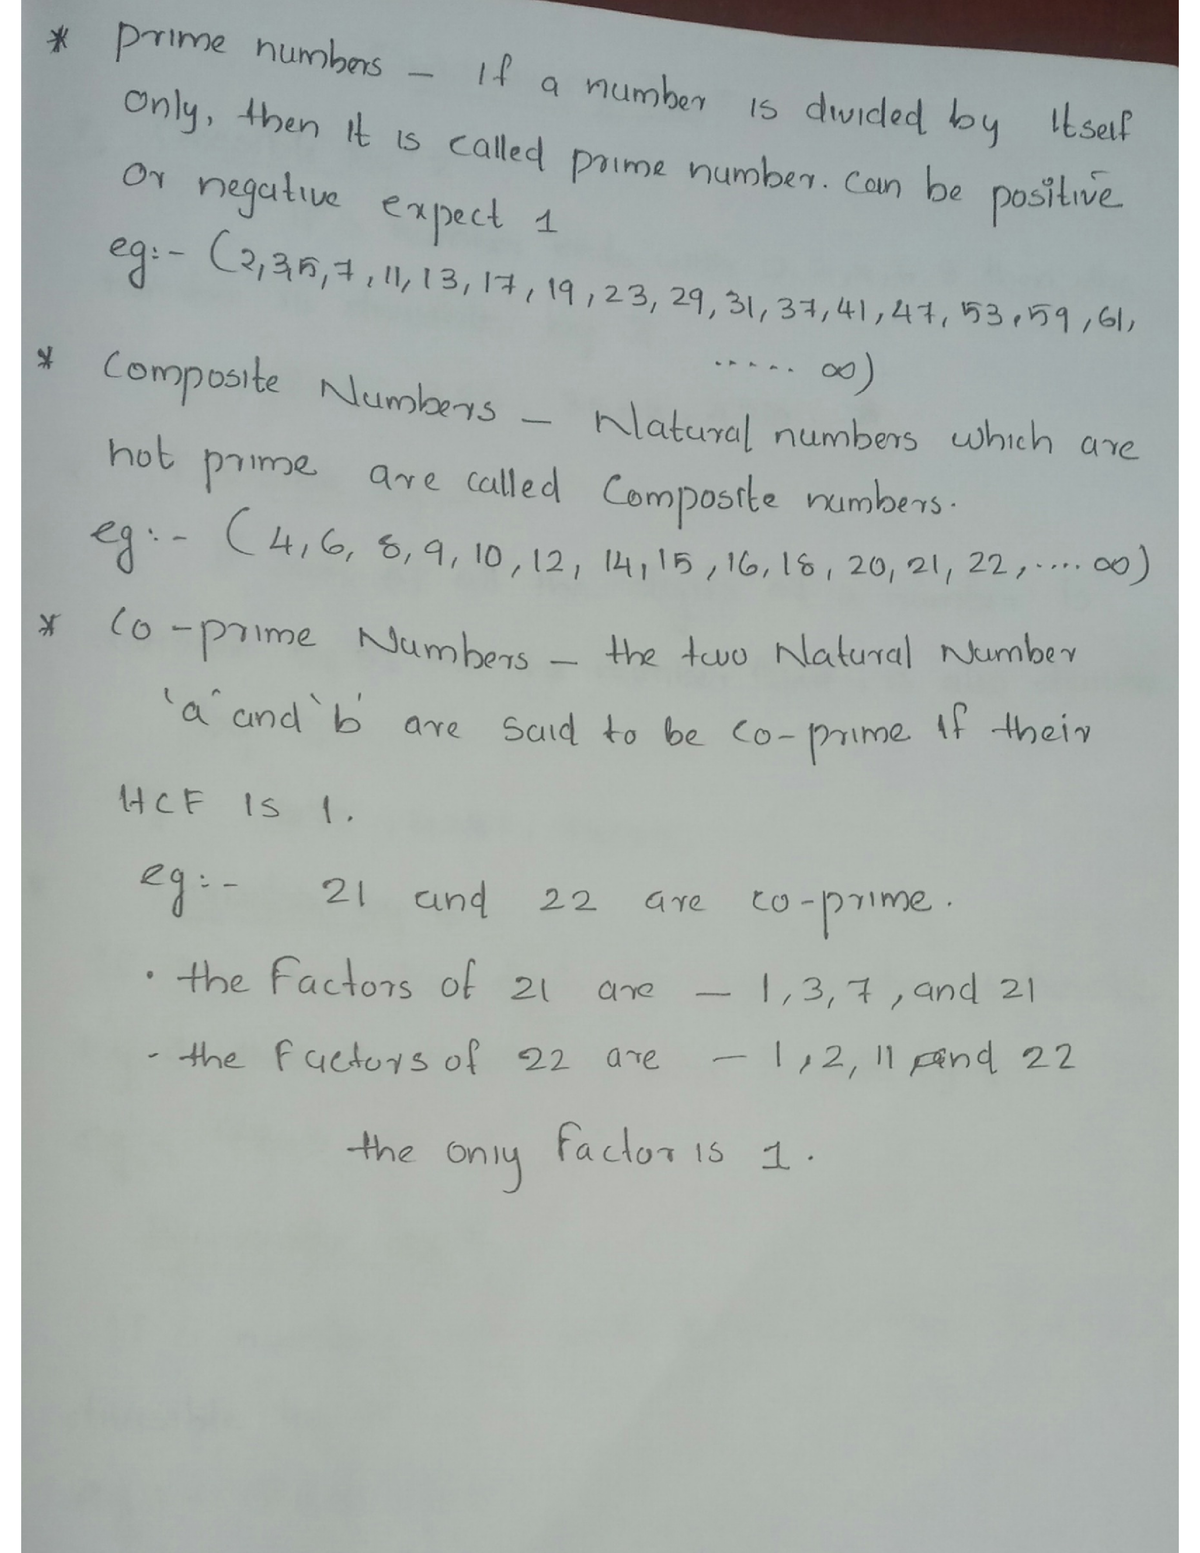 * Prime numbers - If a number is divided by itself
only, then it is called prime number. Can be positive
or negative expect 1
eg:- (2,3,5,7,11,13,17,19,23,29,31,37,41,47,53,59,61,
..... ∞)
* Composite Numbers - Natural numbers which are
not prime are called Composite numbers.
eg:- (4,6,8,9,10,12,14,15,16,18,20,21,22,.... ∞)
* Co-prime Numbers - the two Natural Number
'a' and 'b' are said to be co-prime if their
HCF is 1.
eg:- 21 and 22 are co-prime.
• the Factors of 21 are - 1,3,7, and 21
- the Factors of 22 are - 1,2,11 and 22
the only factor is 1.